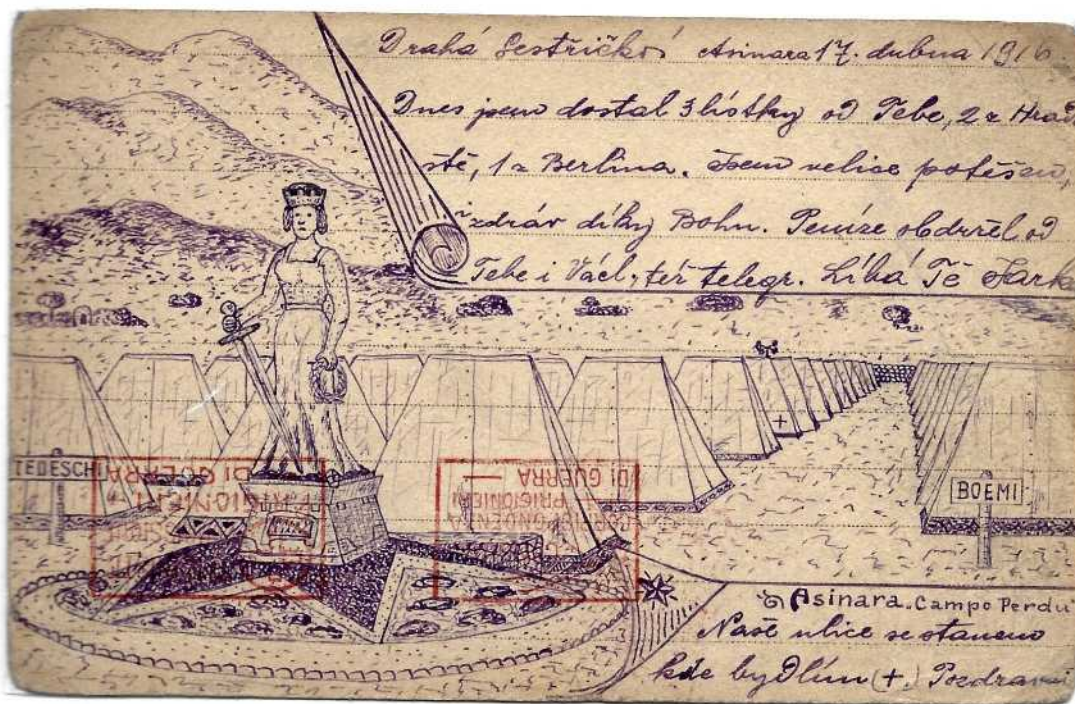 Drahá Sestřičko! Asinara 17. dubna 1916
Dnes jsem dostal 3 lístky od Tebe, 2 z Hrad
ště, 1 z Berlina. Jsem velice potěšen,
i zdráv díky Bohu. Peníze obdržel od
Tebe i Václ, též telegr. Líbá Tě Jark
TEDESCHI
BOEMI
DI GUERRA
PRIGIONIERI
CORRISPONDENZA
DI GUERRA
PRIGIONIERI
Asinara. Campo Perdu
Naše ulice se stanem
kde bydlím (+) Pozdravuj